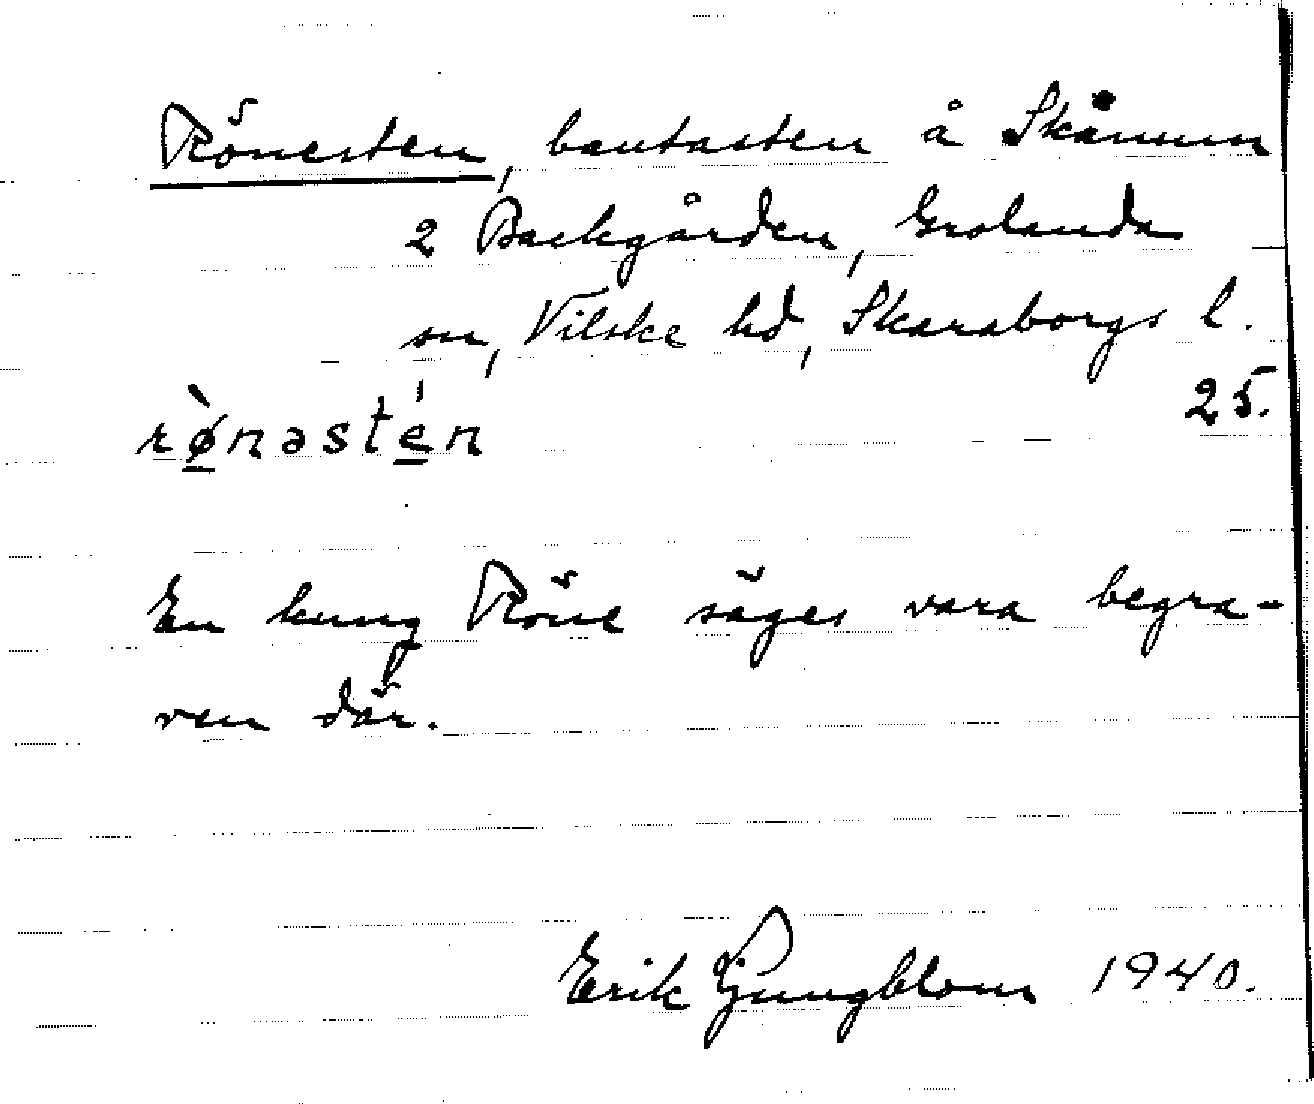 Rönesten, bautasten å Skånum
2 Backgården, Grolanda
sn, Vilske hd, Skaraborgs l.
25.
rø̀nəste̍n
En kung Röne säges vara begra-
ven där.
Erik Ljungblom 1940.